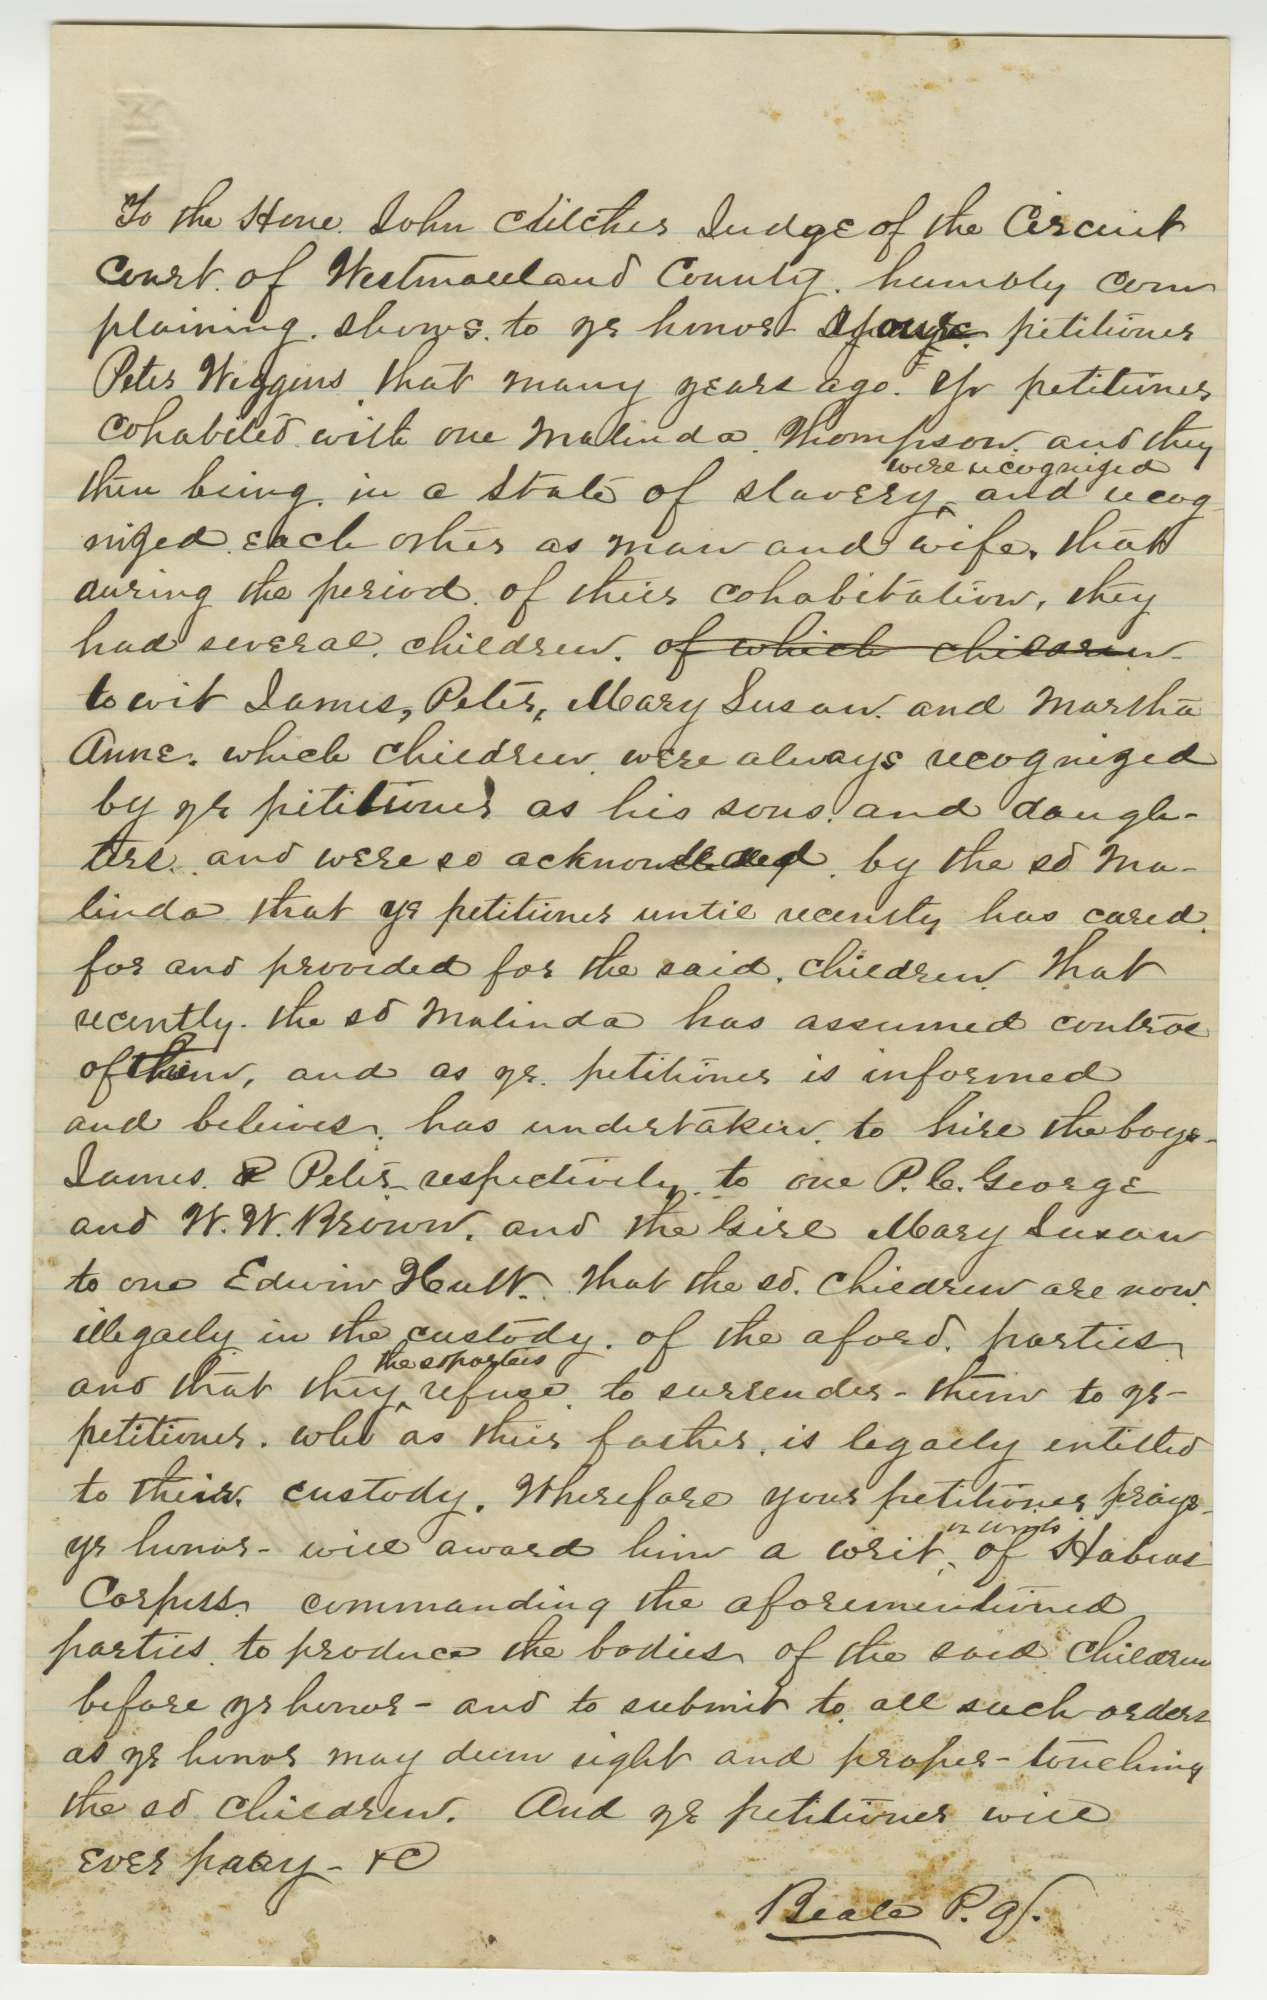 To the Hone. John Critcher Judge of the Circuit
Court. of Westmoreland County. humbly com
plaining. shows. to yr honor your petitioner
Peter Wiggins. that many years ago. yr petitioner
cohabited with one Malinda Thompson. and they
were recognized
then being. in a state of slavery, and recog
nized each other as man and wife, that
during the period of their cohabitation, they
had several children. of which children
to wit James, Peter, Mary Susan. and Martha
Anne. which children were always recognized
by yr petitioner as his sons. and daugh-
ters. and were so acknowledged by the sd Ma-
linda that yr petitioner until recently has cared.
for and provided for the said. children. that
recently. the sd Malinda has assumed control
of them, and as yr. petitioner is informed
and believes. has undertaken. to hire the boys-
James & Peter respectively. to one P. C. George
and W. W. Brown. and the Girl Mary Susan
to one Edwin Hutt. that the sd. children are now.
illegally in the custody. of the aforsd. parties
the sd parties
and that they refuse to surrender - them to yr-
petitioner. who as their father. is legally entitled
to their. custody. Wherefore your petitioner prays-
or writs
yr honor - will award him a writ, of Habeas
Corpuss. commanding the aforementioned
parties. to produce the bodies of the said children
before yr honor - and to submit to. all such orders
as yr honor may deem right and proper - touching
the sd children. And yr petitioner will
ever pray - &C
Beale P. Q.